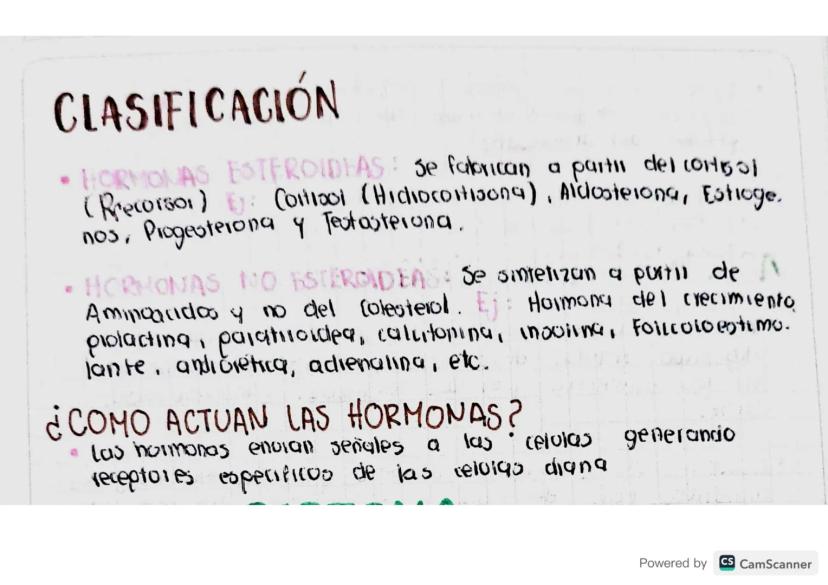 CLASIFICACIÓN
• HORMONAS ESTEROIDEAS: Se fabrican a partir del cortisol
(Precorsor) Ej: Cortisol (Hidrocortisona), Aldosterona, Estroge.
nos, Progesterona y Testosterona.
• HORMONAS NO ESTEROIDEAS: Se sintetizan a partir de
Aminoacidos y no del Colesterol. Ej: Hormona del crecimiento,
prolactina, paratiroidea, calcitonina, insulina, Foliculoestimu.
lante, antidiuretica, adrenalina, etc.
¿COMO ACTUAN LAS HORMONAS?
• Las hormonas envian señales a las celulas generando
receptores especificos de las celulas diana
Powered by CS CamScanner